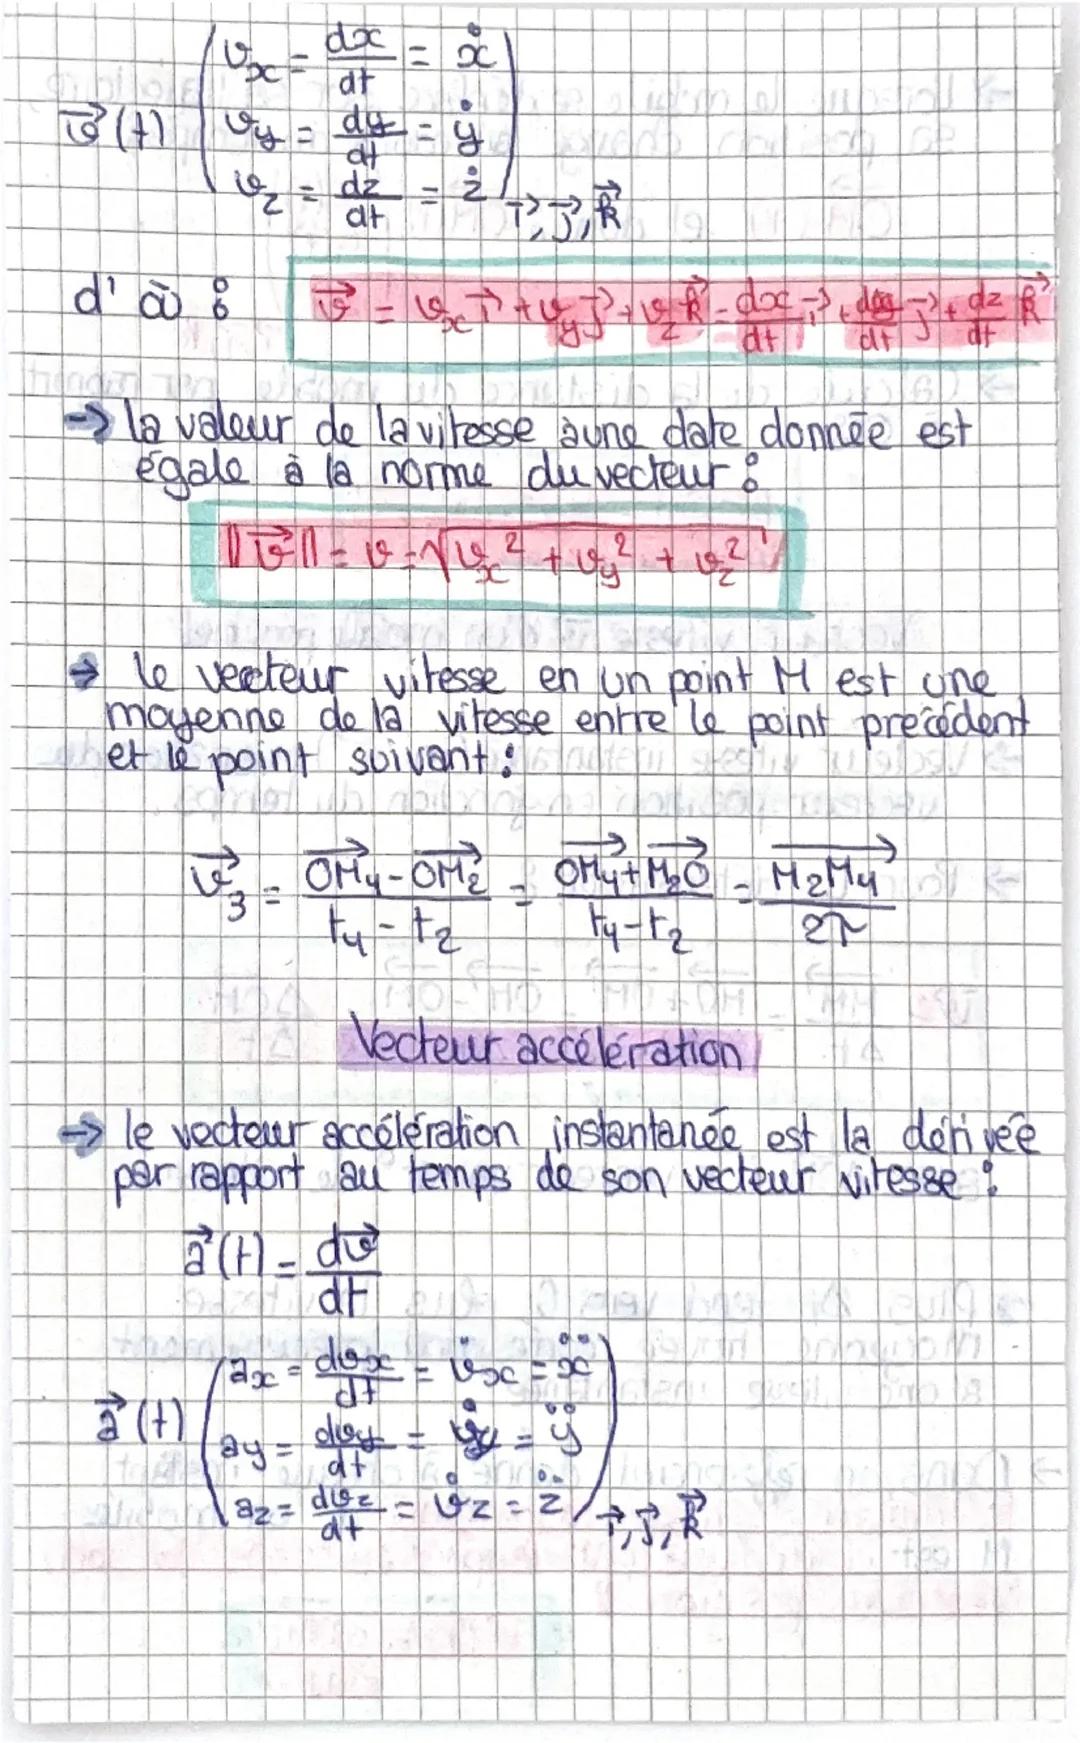 v⃗(t) ( v_x = dx/dt = ẋ
v_y = dy/dt = ẏ
v_z = dz/dt = ż ) i⃗, j⃗, k⃗
d'où : v⃗ = v_x i⃗ + v_y j⃗ + v_z k⃗ = dx/dt i⃗ + dy/dt j⃗ + dz/dt k⃗
→ la valeur de la vitesse à une date donnée est
égale à la norme du vecteur :
||v⃗|| = v = √(v_x² + v_y² + v_z²)
→ le vecteur vitesse en un point M est une
moyenne de la vitesse entre le point précédent
et le point suivant :
v⃗₃ = (OM₄⃗ - OM₂⃗)/(t₄ - t₂) = (OM₄⃗ + M₂O⃗)/(t₄ - t₂) = M₂M₄⃗/2τ
Vecteur accélération
→ le vecteur accélération instantanée est la dérivée
par rapport au temps de son vecteur vitesse :
a⃗(t) = dv⃗/dt
a⃗(t) ( a_x = dv_x/dt = v̇_x = ẍ
a_y = dv_y/dt = v̇_y = ÿ
a_z = dv_z/dt = v̇_z = z̈ ) i⃗, j⃗, k⃗